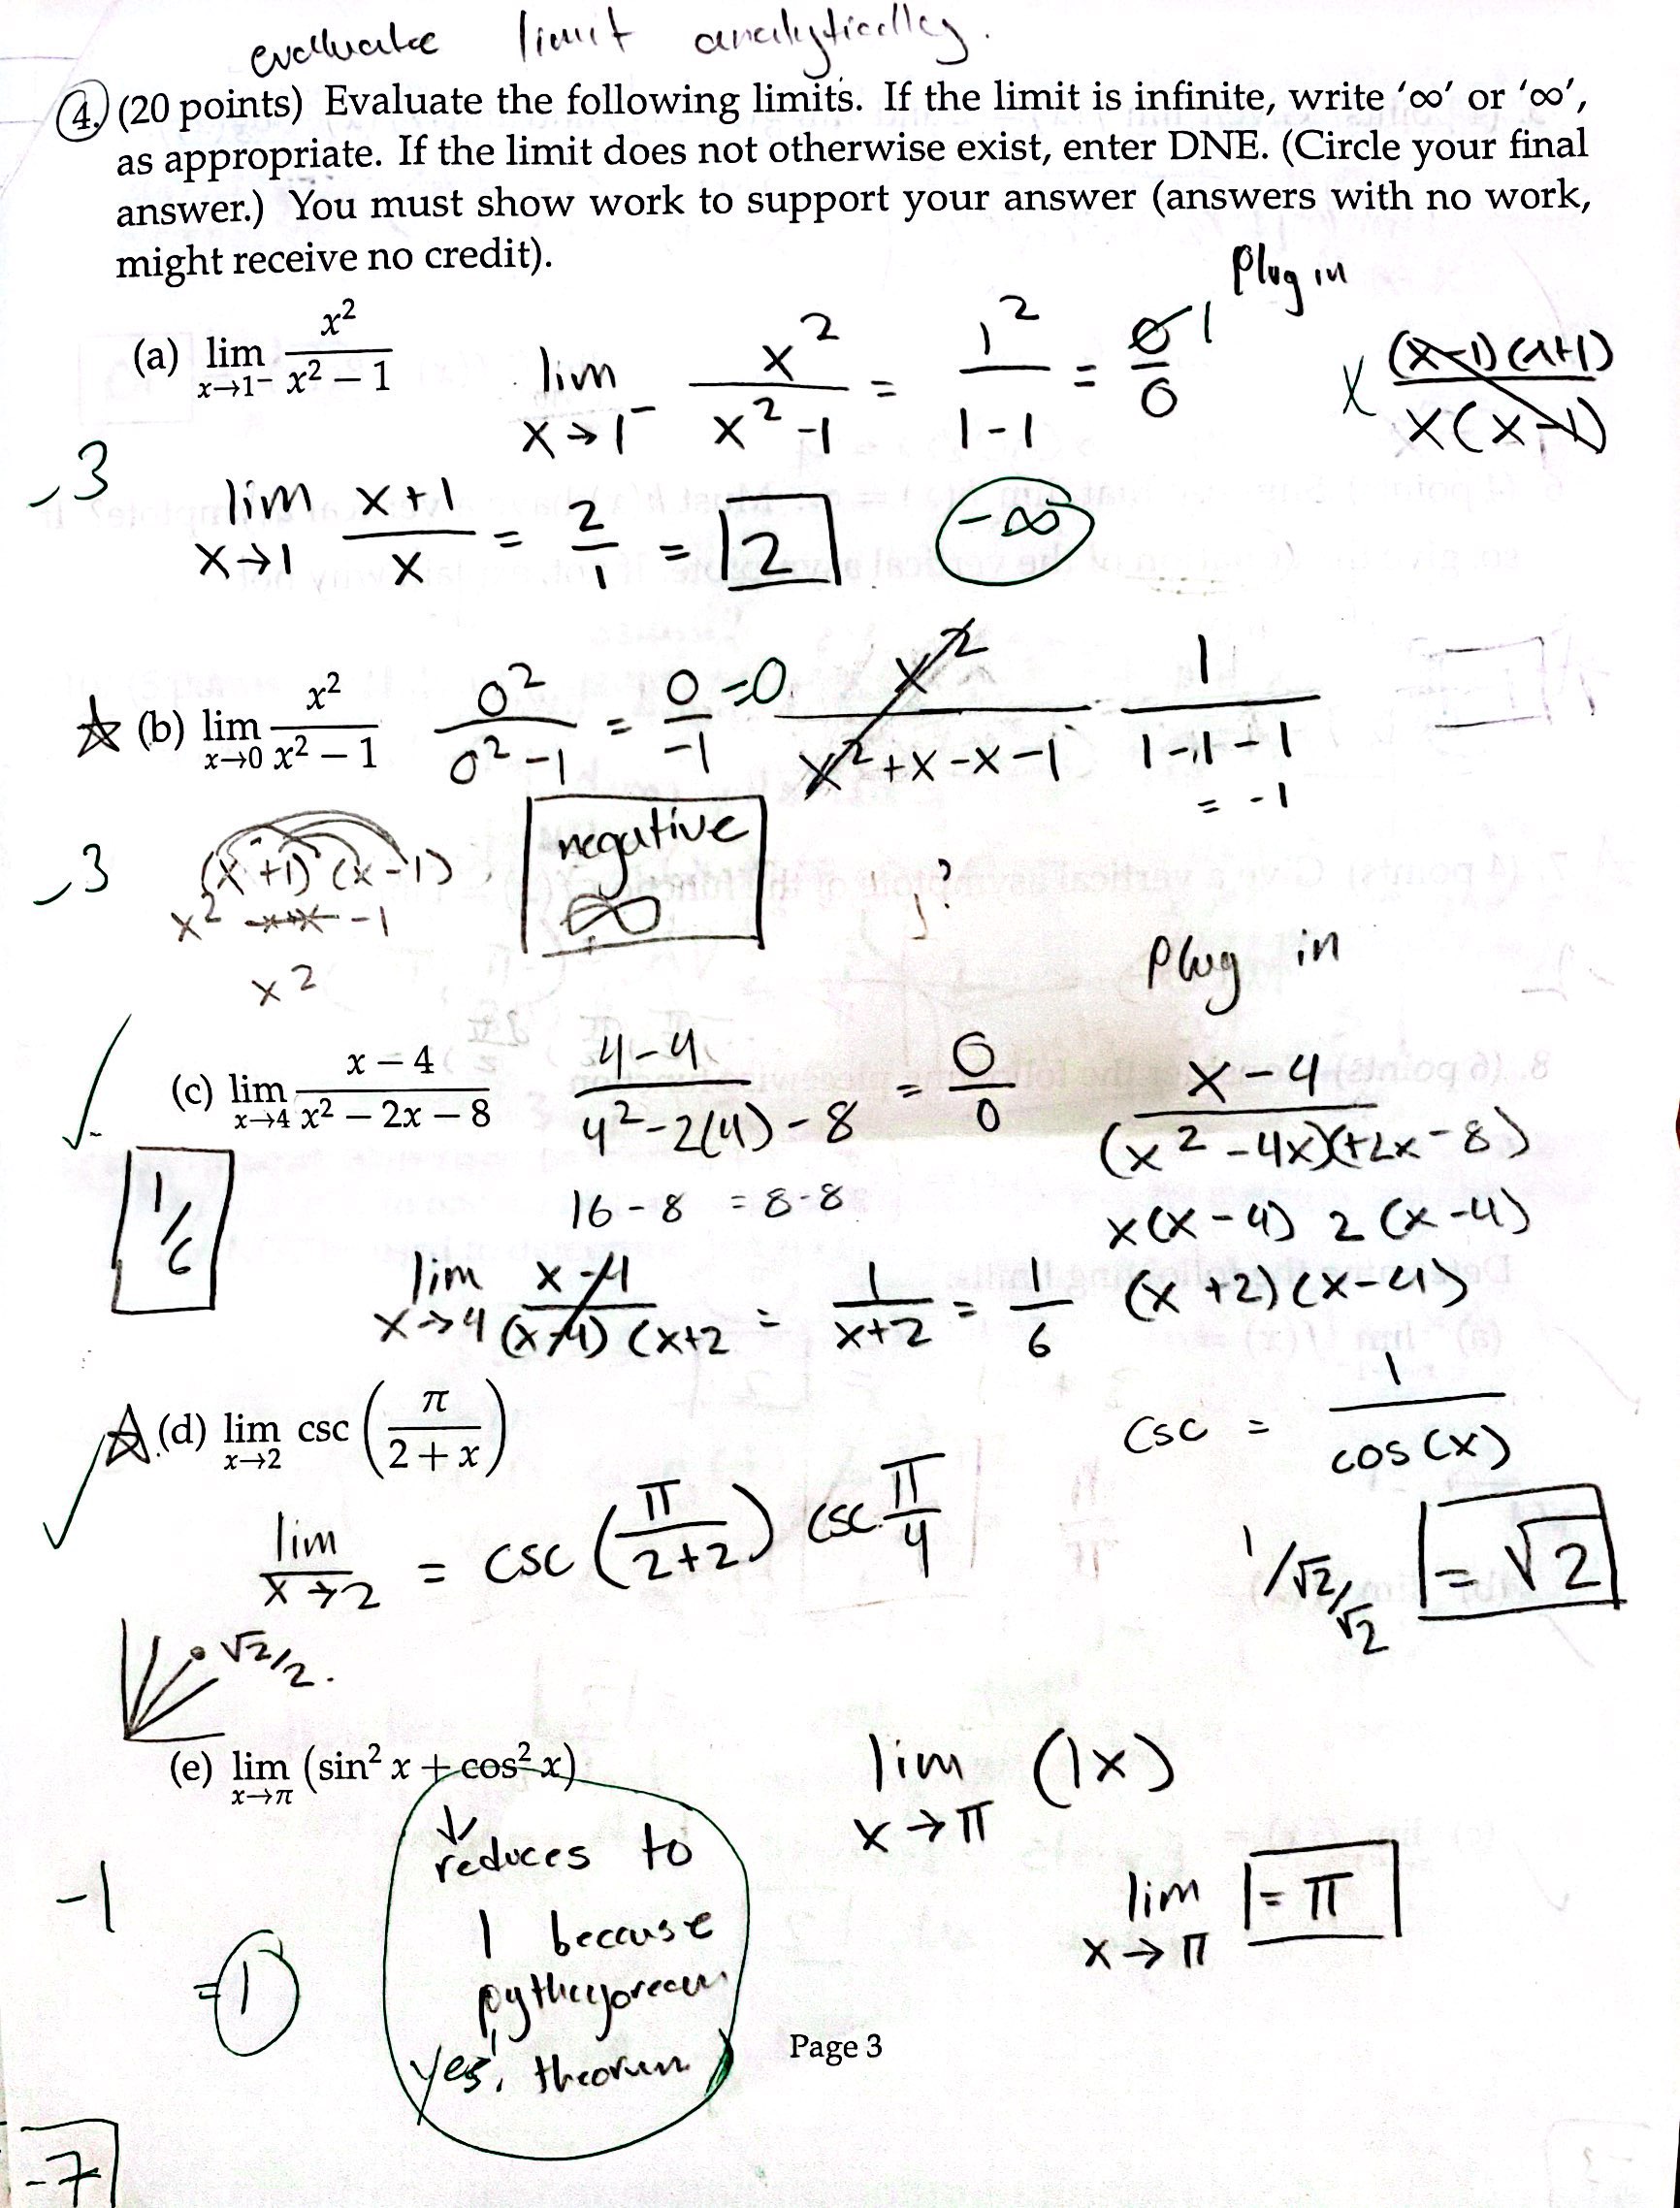 evaluate limit analytically.
4. (20 points) Evaluate the following limits. If the limit is infinite, write '∞' or '∞',
as appropriate. If the limit does not otherwise exist, enter DNE. (Circle your final
answer.) You must show work to support your answer (answers with no work,
might receive no credit).
Plug in
(a) lim x→1⁻ x²/(x² − 1)
lim x→1⁻ x²/(x²-1) = 1²/(1-1) = 0 1/0
x (x-1)(x+1)/x(x-1)
-3
lim x→1 (x+1)/x = 2/1 = 2
-∞
(b) lim x→0 x²/(x² − 1)
0²/(0²-1) = 0/-1 =0
x²/(x²+x-x-1)
1/(1-1-1)
= -1
-3
(x+1)(x-1)
x² -x+x -1
x2
negative
∞
?
Plug in
(c) lim x→4 (x − 4)/(x² − 2x − 8)
(4-4)/(4²-2(4)-8) = 0/0
16-8 = 8-8
(x-4)/(x²-4x)(+2x-8)
x(x-4) 2(x-4)
(x+2)(x-4)
1/6
lim x→4 (x-4)/(x-4)(x+2 = 1/(x+2) = 1/6
(d) lim x→2 csc (π/(2 + x))
csc = 1/cos(x)
lim x→2 = csc (π/(2+2)) csc π/4
1/√2/√2
= √2
√2/2.
(e) lim x→π (sin² x + cos² x)
lim x→π (1x)
↓
reduces to
1 because
pythagorean
theorum
yes!
lim x→π = π
-1
=1
Page 3
-7